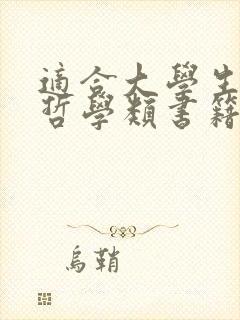 適合大學生
哲學類書籍
烏鞘